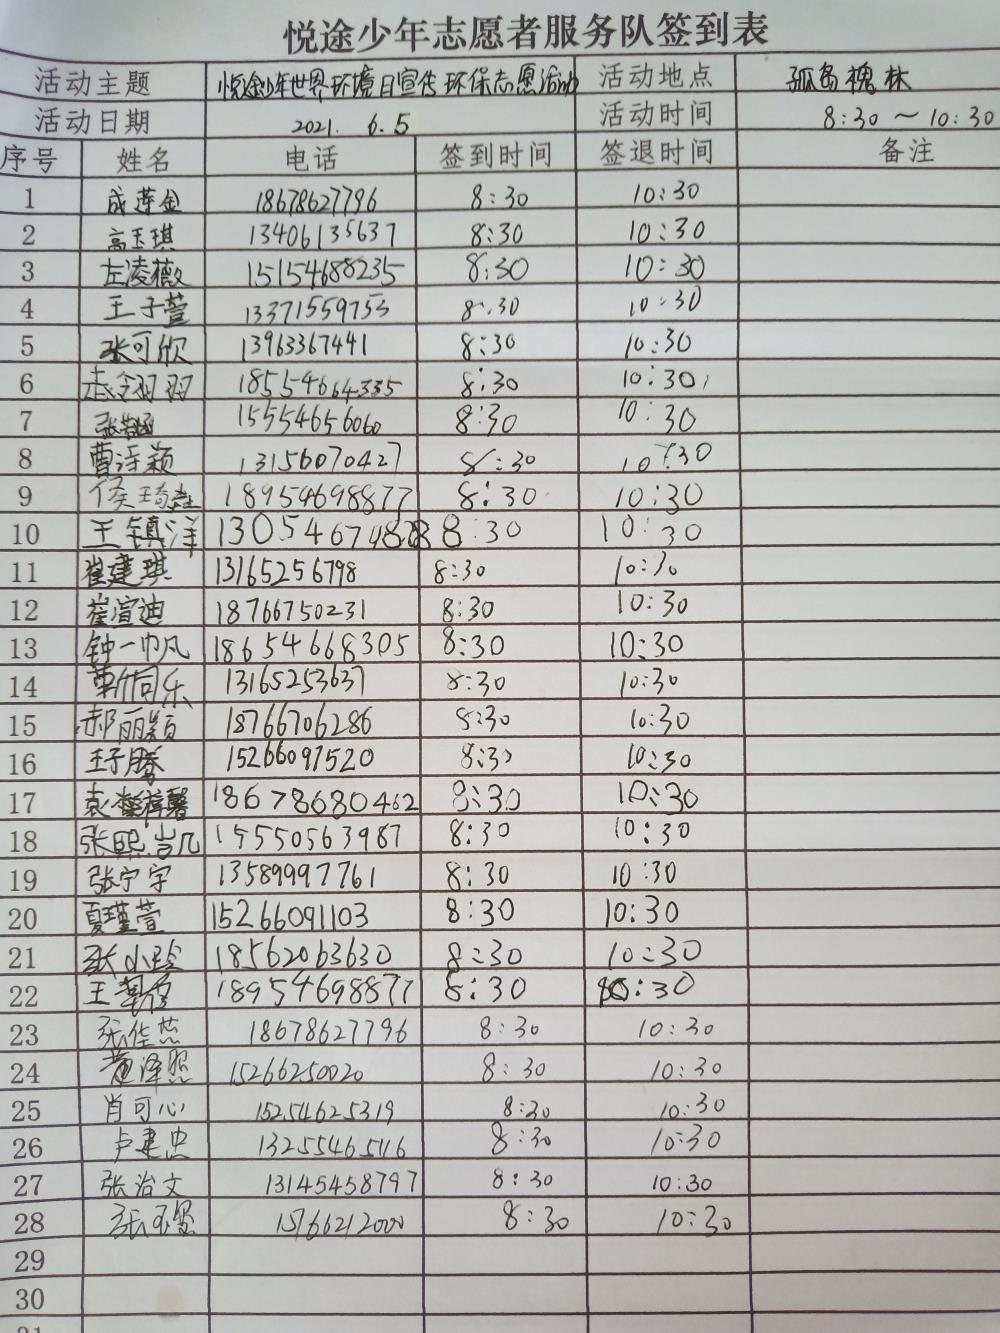 悦途少年志愿者服务队签到表
活动主题 悦途少年世界环境日宣传环保志愿活动 活动地点 孤岛槐林
活动日期 2021. 6.5 活动时间 8:30～10:30
序号 姓名 电话 签到时间 签退时间 备注
1 成莲金 18678627796 8:30 10:30
2 高玉琪 13406135637 8:30 10:30
3 左凌薇 15154688235 8:30 10:30
4 王子萱 13371559753 8:30 10:30
5 张可欣 13963367441 8:30 10:30
6 18554664335 8:30 10:30
7 15554656060 8:30 10:30
8 曹诗颖 13156070427 8:30 10:30
9 侯 18954698877 8:30 10:30
10 王镇洋 8:30 10:30
11 崔建琪 13165256798 8:30 10:30
12 崔渲迪 18766750231 8:30 10:30
13 钟一帆 18654668305 8:30 10:30
14 靳同乐 13165253637 8:30 10:30
15 郝丽颖 18766706286 8:30 10:30
16 王子腾 15266097520 8:30 10:30
17 袁 馨 18678680462 8:30 10:30
18 张熙 15550563987 8:30 10:30
19 张宁宇 13589997761 8:30 10:30
20 夏瑾萱 15266091103 8:30 10:30
21 张小玲 18562063630 8:30 10:30
22 王 18954698877 8:30 10:30
23 张佳芯 18678627796 8:30 10:30
24 泽熙 15266250020 8:30 10:30
25 肖可心 15254625319 8:30 10:30
26 卢建忠 13255465116 8:30 10:30
27 张治文 13145458797 8:30 10:30
28 张 15766212000 8:30 10:30
29
30
31